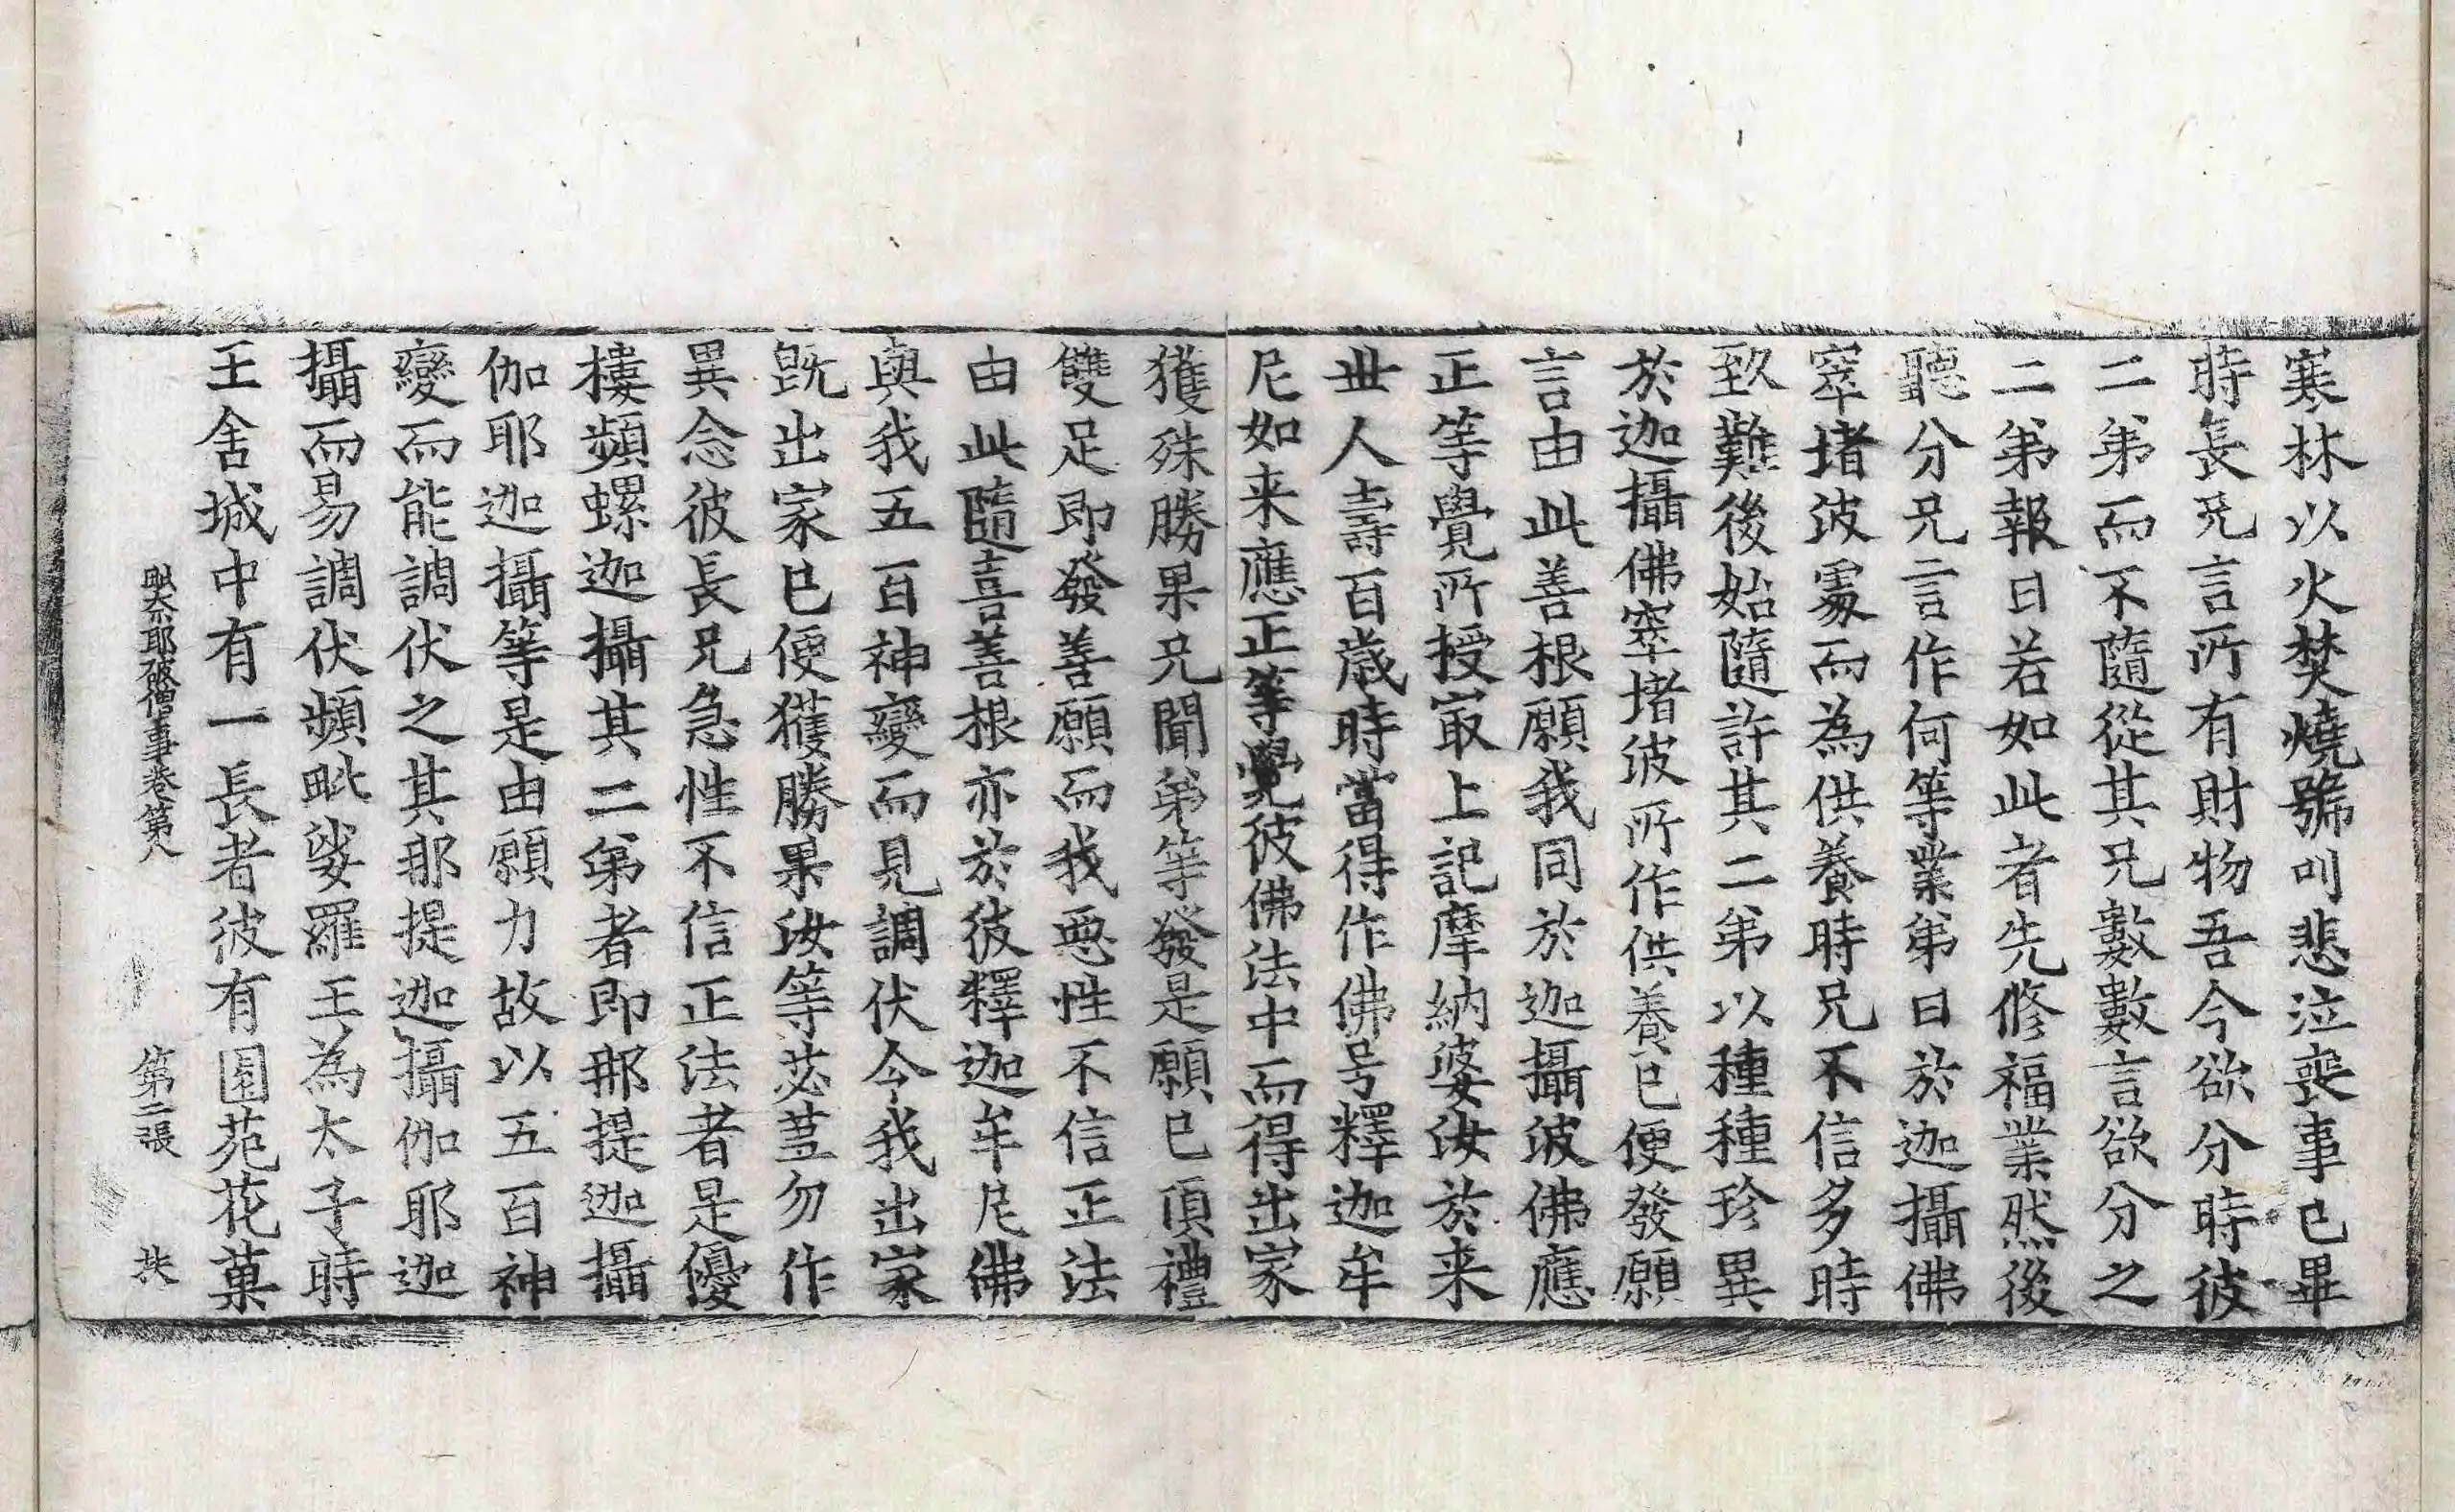 寒林以火焚燒號叫悲泣喪事已畢
時長兄言所有財物吾今欲分時彼
二弟而不隨從其兄數數言欲分之
二弟報曰若如此者先修福業然後
聽分兄言作何等業弟曰於迦攝佛
窣堵波䖏而為供養時兄不信多時
致難後始隨許其二弟以種種珍異
於迦攝佛窣堵波所作供養已便發願
言由此善根願我同於迦攝波佛應
正等覺所授㝡上記摩納婆汝於来
世人壽百歲時當得作佛号釋迦牟
尼如来應正等覺彼佛法中而得出家
獲殊勝果兄聞弟等發是願已頂禮
雙足即發善願而我惡性不信正法
由此隨喜善根亦於彼釋迦牟尼佛
與我五百神變而見調伏今我出家
旣出家已便獲勝果汝等苾蒭勿作
異念彼長兄急性不信正法者是優
樓頻螺迦攝其二弟者即那提迦攝
伽耶迦攝等是由願力故以五百神
變而能調伏之其那提迦攝伽耶迦
攝而易調伏頻毗娑羅王為太子時
王舍城中有一長者彼有園苑花菓
毗奈耶破僧事卷第八 第二張 扶